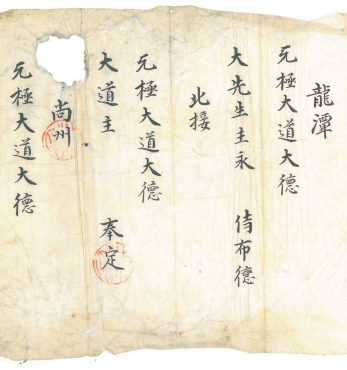 龍潭
元極大道大德
大先生主永 侍布德
北接
元極大道大德
大道主 奉定
尚州
元極大道大德